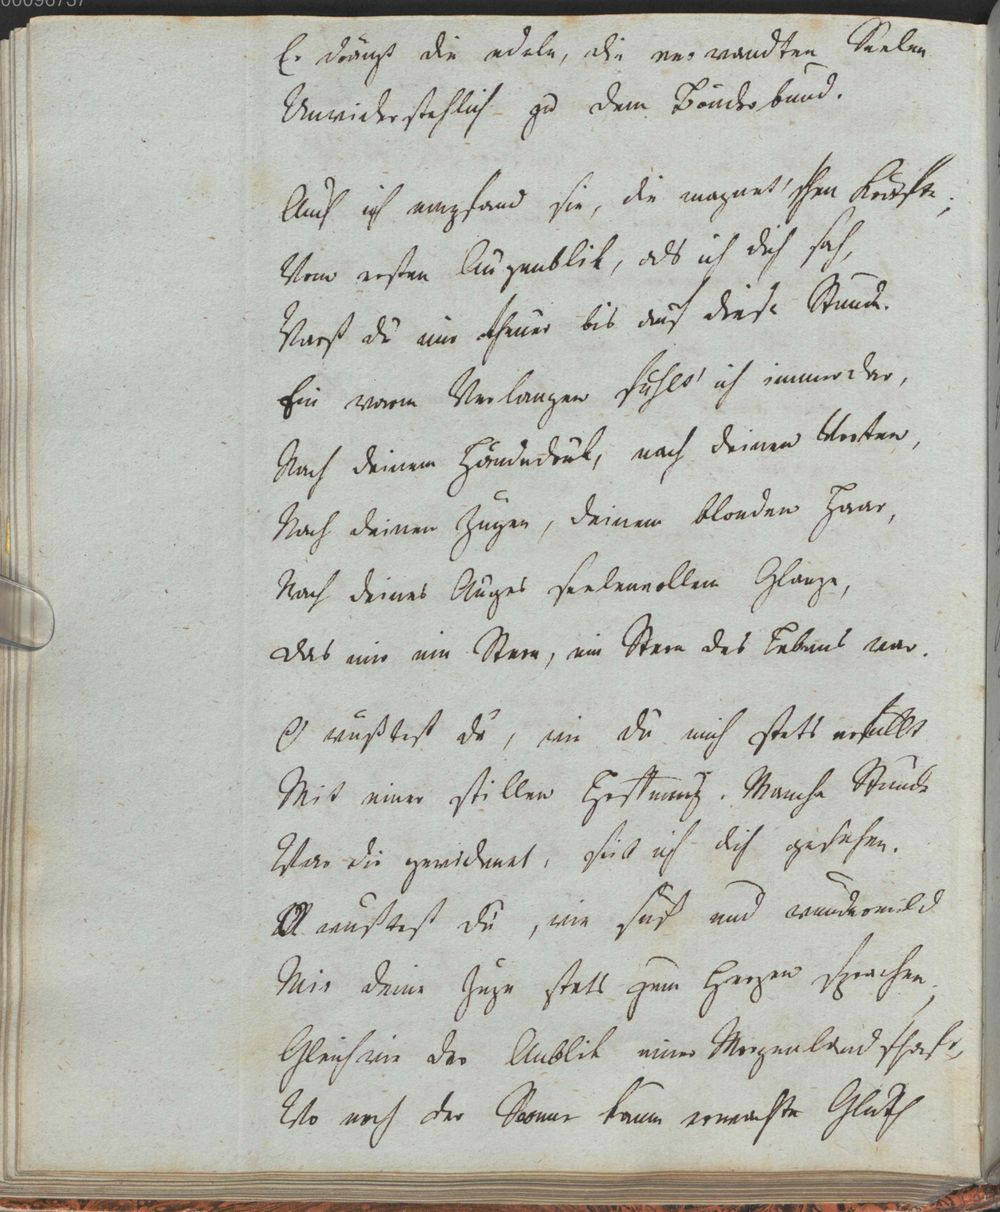 00096737
Er drängt die edeln, die verwandten Seelen
Unwiderstehlich zu dem Bruderbund.
Auch ich empfand sie, die magnet'schen Kräfte;
Vom ersten Augenblik, als ich dich sah,
Warst du mir theuer bis auf diese Stunde.
Ein warm Verlangen fühlt' ich immerdar,
Nach deinem Händedruk, nach deinen Worten,
Nach deinen Zügen, deinem blonden Haar,
Nach deines Auges seelenvollem Glanze,
Das mir ein Stern, ein Stern des Lebens war.
O wüßtest du, wie du mich stets erfüllt
Mit einer stillen Hoffnung. Manche Stunde
War dir gewidmet, seit ich dich gesehen.
O wüßtest du, wie süß und wundermild
Mir deine Züge stets zum Herzen sprachen,
Gleichwie der Anblik einer Morgenlandschaft,
Wo noch der Sonne kaum erwachte Gluth